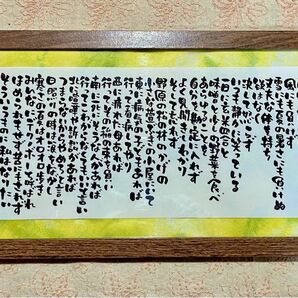 雨にも負けず
風にも負けず
雪にも夏の暑さにも負けぬ
丈夫な体を持ち
欲はなく
決していからず
いつも静かに笑っている
一日に玄米四合と
味噌と少しの野菜を食べ
あらゆることを
自分を勘定に入れずに
よく見聞きし分かり
そして忘れず
野原の松の林のかげの
小さな萱ぶきの小屋にいて
東に病気の子どもあれば
行って看病してやり
西に疲れた母あれば
行ってその稲の束を負い
南に死にそうな人あれば
行ってこわがらなくてもいいと言い
北に喧嘩や訴訟があれば
つまらないからやめろと言い
日照りの時は涙を流し
寒さの夏はおろおろ歩き
みんなにでくのぼーと呼ばれ
ほめられもせず苦にもされず
そういうものに私はなりたい